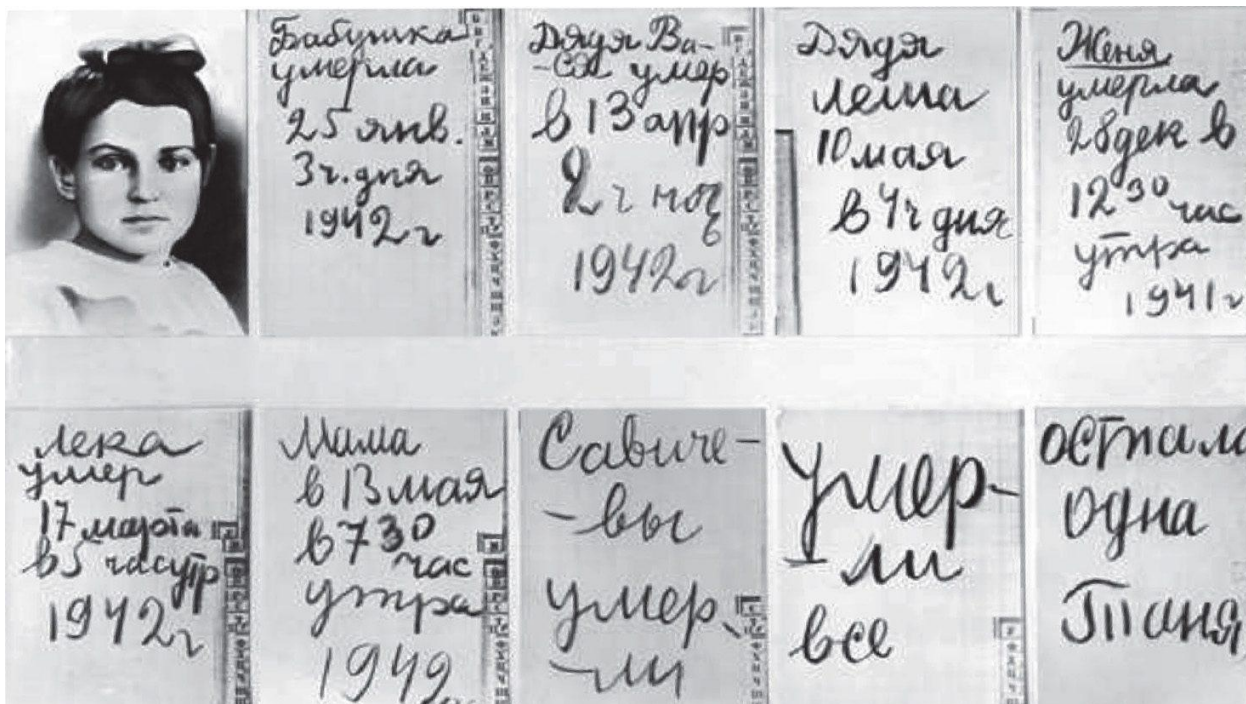 Бабушка
умерла
25 янв.
3ч. дня
1942 г
Дядя Ва-
-ся умер
в 13 апр
2 ч ночь
1942г
Дядя
Леша
10 мая
в 4ч дня
1942г
Женя
умерла
28 дек в
12 30 час
утра
1941 г
Лека
умер
17 марта
в 5 часутр
1942г
Мама
в 13 мая
в 7 30
час
утра
1942
Савиче-
-вы
умер-
-ли
Умер-
-ли
все
Остала
одна
Таня